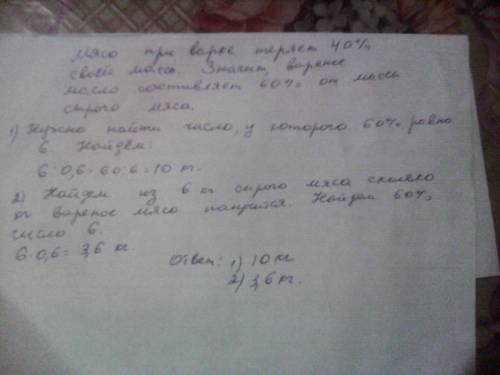 Мясо при варке теряет 40%
своей массы. Значит, вареное
масло составляет 60% от массы
сырого мяса.
1) Нужно найти число, у которого 60% равно
6. Найдём:
6:0,6=60:6=10 кг.
2) Найдем из 6 кг сырого мяса сколько
кг вареное мясо получится. Найдем 60%
число 6.
6·0,6=3,6 кг.
Ответ: 1) 10 кг
2) 3,6 кг.